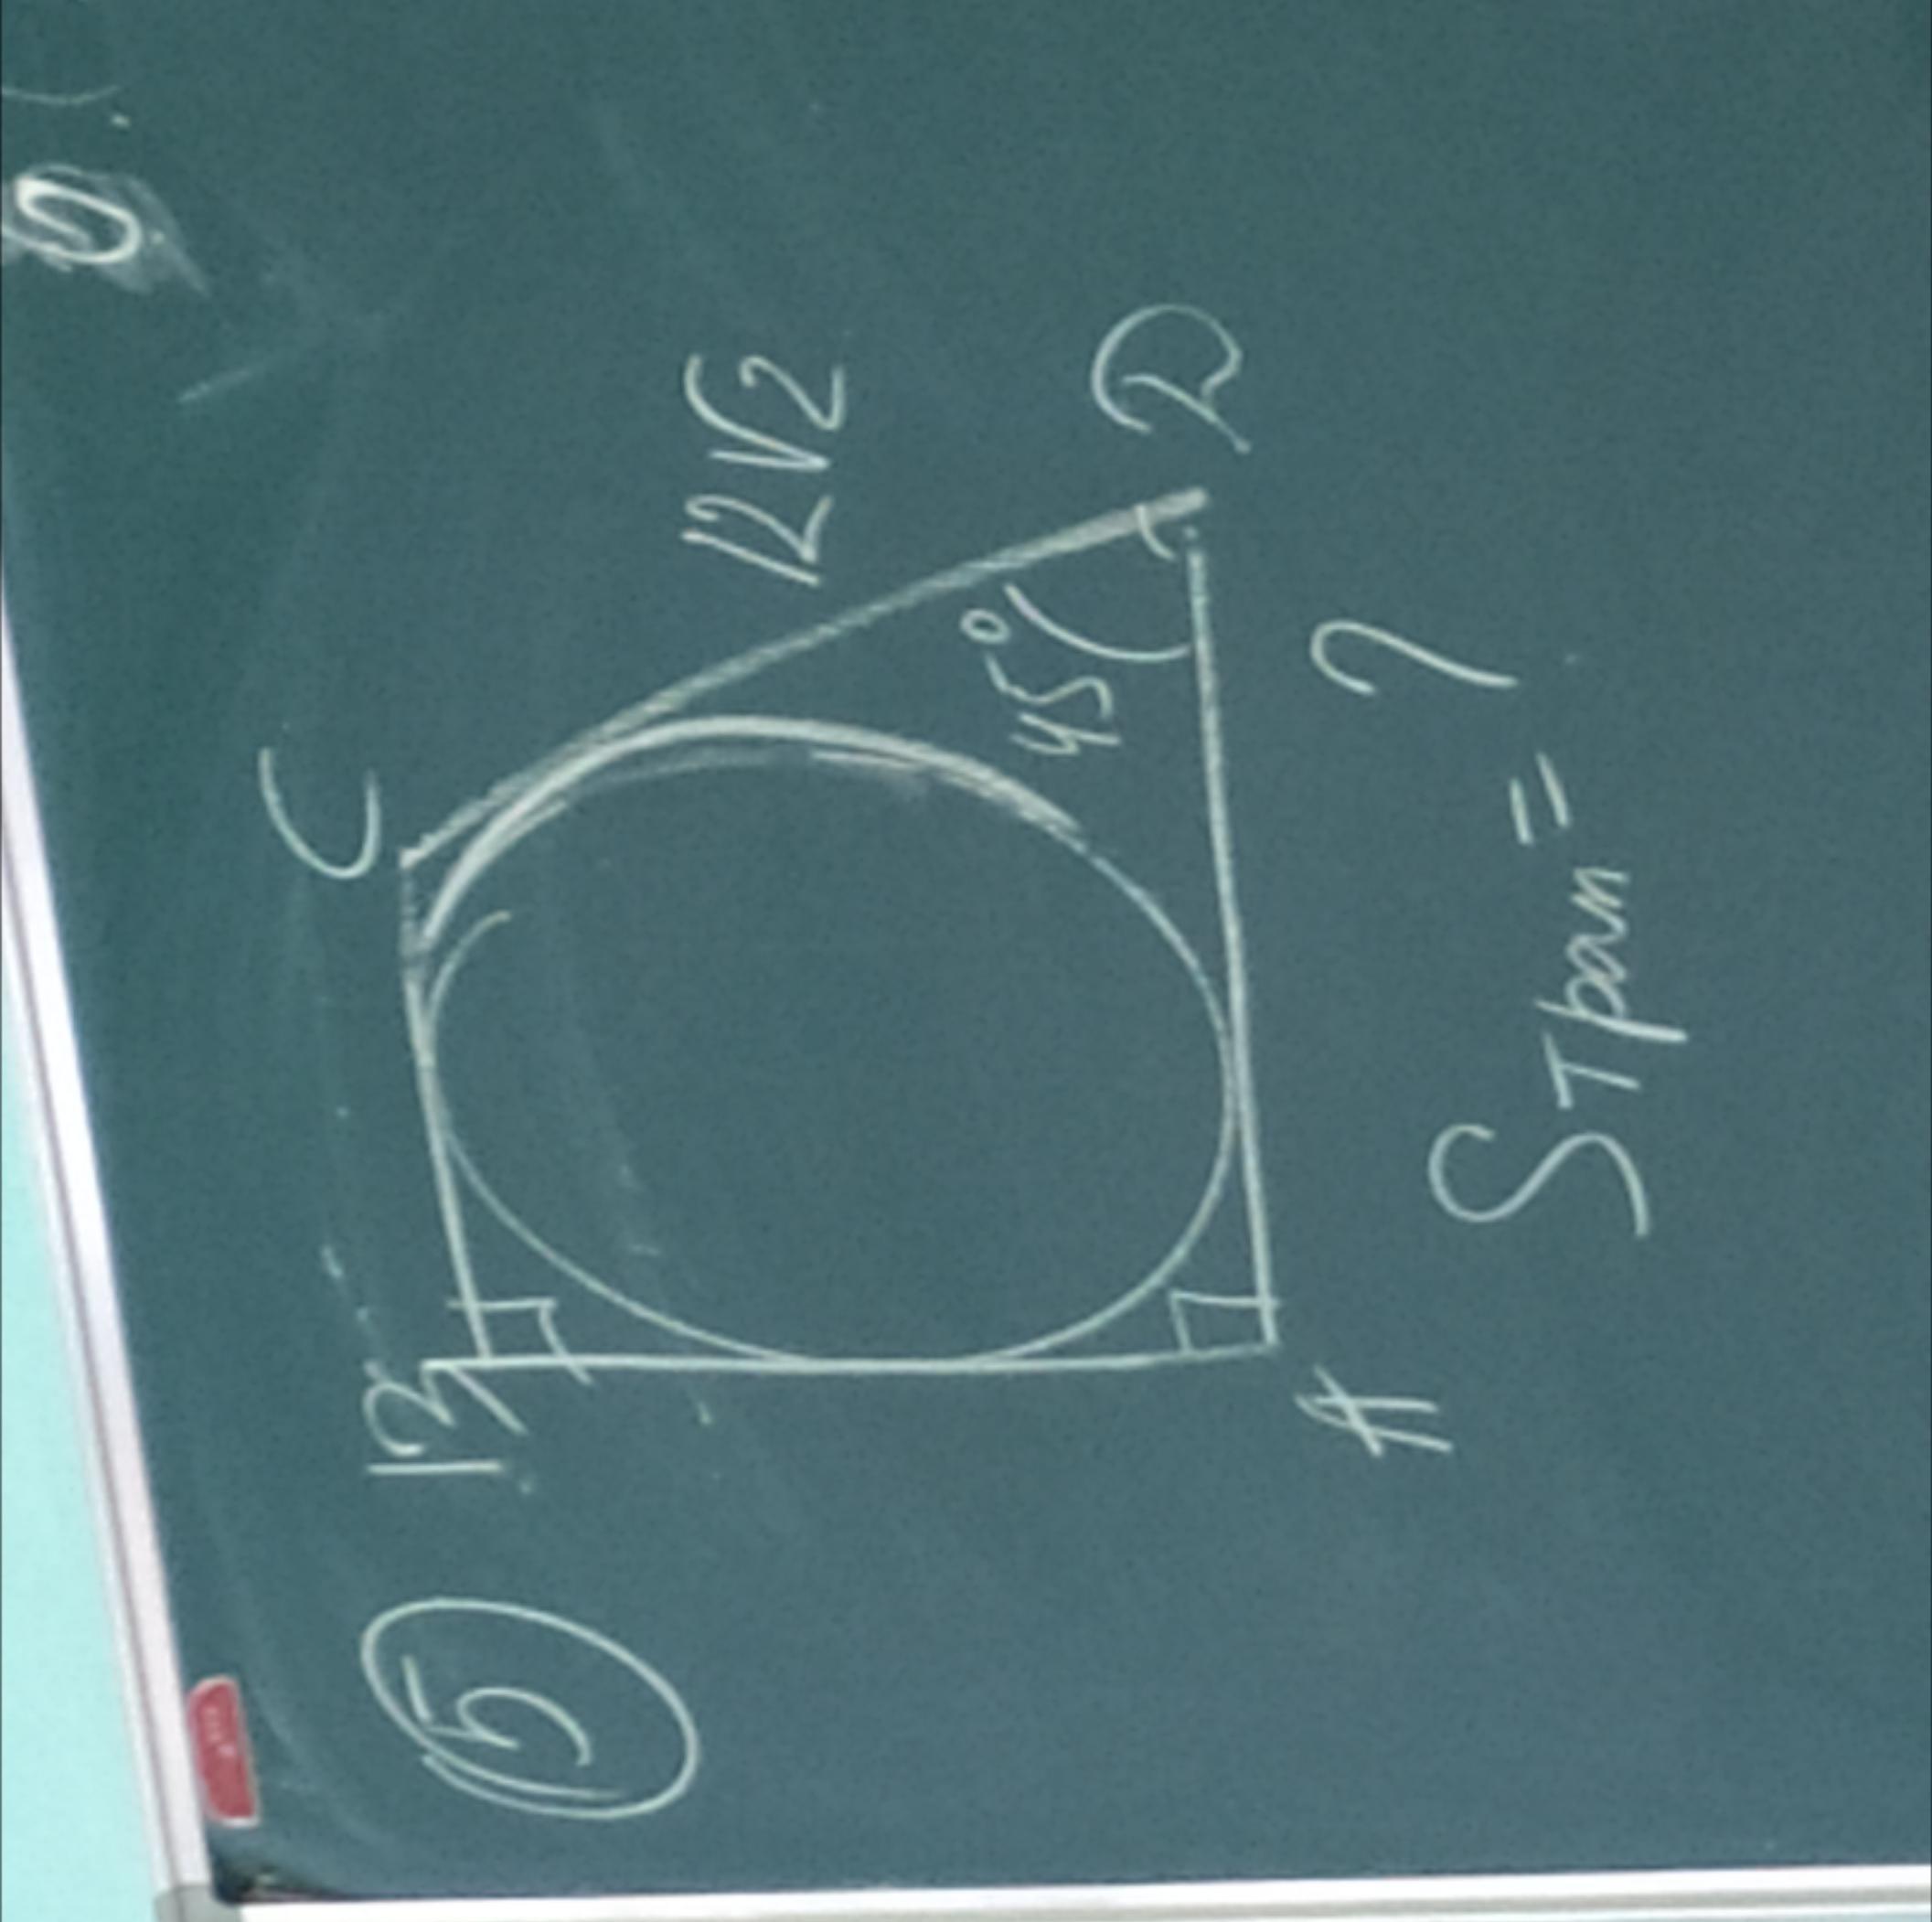 5
B
C
12√2
45°
A
D
Sтрап = ?